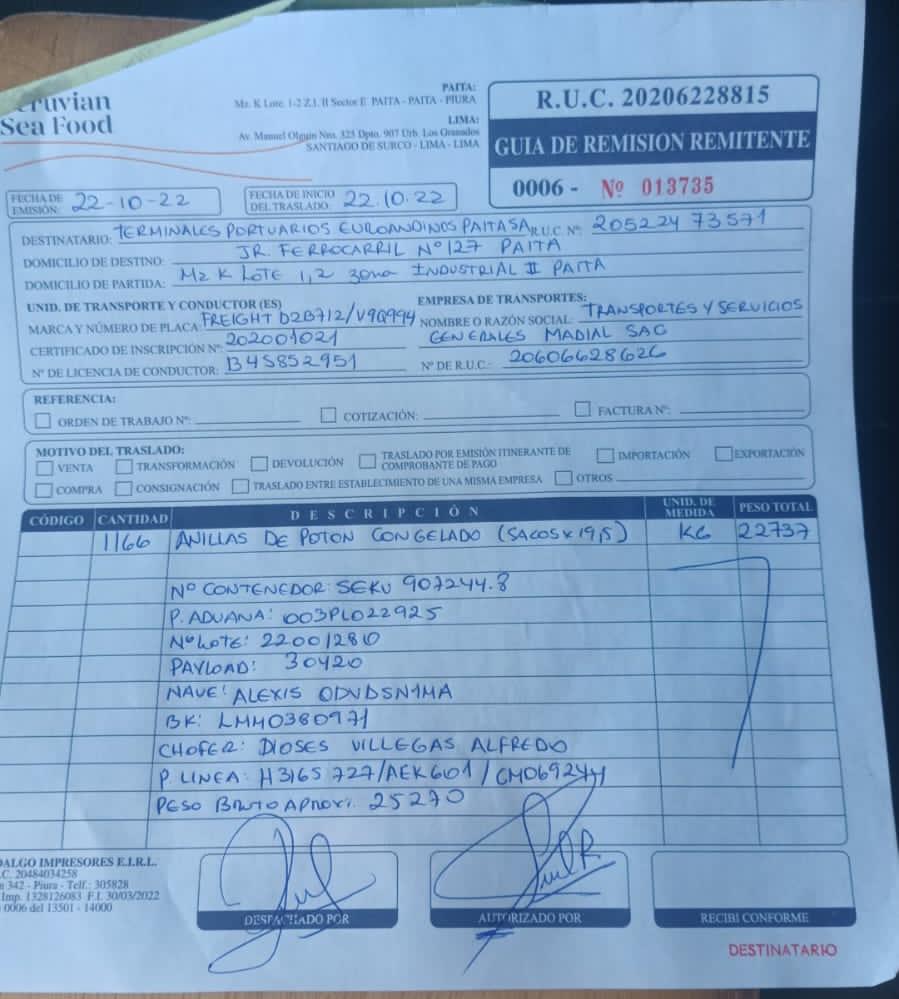 eruvian
Sea Food
PAITA:
Mz. K Lote. 1-2 Z.I. II Sector E PAITA - PAITA - PIURA
LIMA:
Av. Manuel Olguin Nro. 325 Dpto. 907 Urb. Los Granados
SANTIAGO DE SURCO - LIMA - LIMA
R.U.C. 20206228815
GUIA DE REMISION REMITENTE
0006 - Nº 013735
FECHA DE EMISIÓN: 22-10-22
FECHA DE INICIO DEL TRASLADO: 22.10.22
DESTINATARIO: TERMINALES PORTUARIOS EUROANDINOS PAITA SA R.U.C. Nº: 20522473571
DOMICILIO DE DESTINO: JR. FERROCARRIL Nº 127 PAITA
DOMICILIO DE PARTIDA: MZ K LOTE 1,2 zona INDUSTRIAL II PAITA
UNID. DE TRANSPORTE Y CONDUCTOR (ES)
EMPRESA DE TRANSPORTES:
MARCA Y NÚMERO DE PLACA: FREIGHT D2B712/V9Q994
NOMBRE O RAZÓN SOCIAL: TRANSPORTES Y SERVICIOS
GENERALES MADIAL SAC
CERTIFICADO DE INSCRIPCIÓN Nº: 202001021
Nº DE LICENCIA DE CONDUCTOR: B45852951
Nº DE R.U.C.: 20606628626
REFERENCIA:
ORDEN DE TRABAJO Nº:
COTIZACIÓN:
FACTURA Nº:
MOTIVO DEL TRASLADO:
VENTA
TRANSFORMACIÓN
DEVOLUCIÓN
TRASLADO POR EMISIÓN ITINERANTE DE COMPROBANTE DE PAGO
IMPORTACIÓN
EXPORTACIÓN
COMPRA
CONSIGNACIÓN
TRASLADO ENTRE ESTABLECIMIENTO DE UNA MISMA EMPRESA
OTROS
CÓDIGO CANTIDAD DESCRIPCIÓN UNID. DE MEDIDA PESO TOTAL
1166 ANILLAS DE POTON CONGELADO (SACOS x 19,5) KG 22737
Nº CONTENEDOR: SEKU 907244.8
P. ADUANA: 003PL022925
Nº LOTE: 22001280
PAYLOAD: 30420
NAVE: ALEXIS ODVDSN1MA
BK: LMM0380971
CHOFER: DIOSES VILLEGAS ALFREDO
P. LINEA: H3165727/AEK601/CM069244
PESO BRUTO APROX: 25270
DALGO IMPRESORES E.I.R.L.
.C. 20484034258
n 342 - Piura - Telf.: 305828
Imp. 1328126083 F.I. 30/03/2022
0006 del 13501 - 14000
DESPACHADO POR
AUTORIZADO POR
RECIBI CONFORME
DESTINATARIO